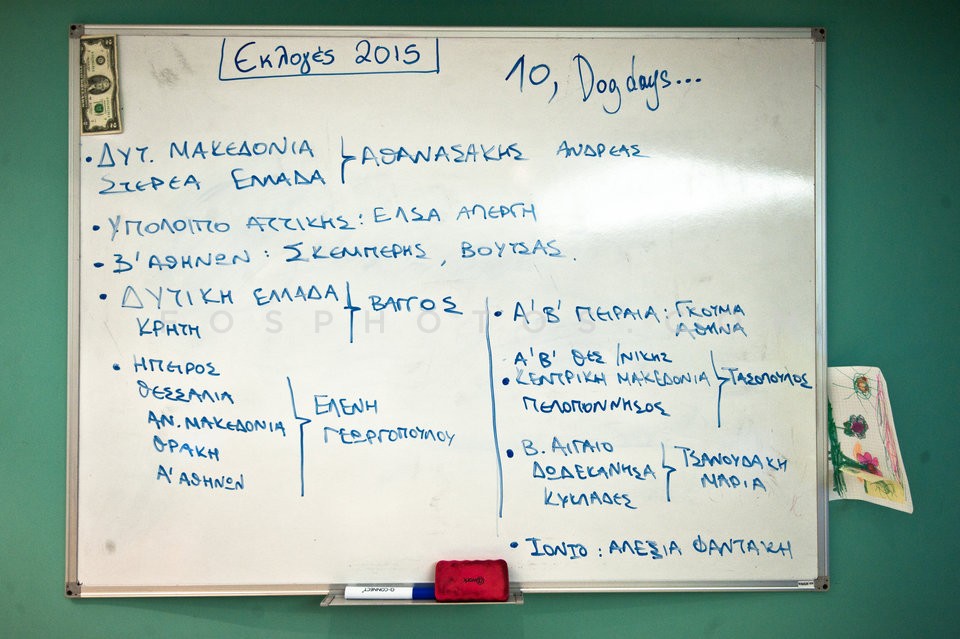 Εκλογές 2015
10, Dog days...
• ΔΥΤ. ΜΑΚΕΔΟΝΙΑ
ΣΤΕΡΕΑ ΕΛΛΑΔΑ
ΑΘΑΝΑΣΑΚΗΣ ΑΝΔΡΕΑΣ
• ΥΠΟΛΟΙΠΟ ΑΤΤΙΚΗΣ: ΕΛΣΑ ΑΠΕΡΓΗ
• Β' ΑΘΗΝΩΝ: ΣΚΕΜΠΕΡΗΣ, ΒΟΥΤΣΑΣ.
• ΔΥΤΙΚΗ ΕΛΛΑΔΑ
ΚΡΗΤΗ
ΒΑΓΓΟΣ
• ΗΠΕΙΡΟΣ
ΘΕΣΣΑΛΙΑ
ΑΝ. ΜΑΚΕΔΟΝΙΑ
ΘΡΑΚΗ
Α' ΑΘΗΝΩΝ
ΕΛΕΝΗ
ΓΕΩΡΓΟΠΟΥΛΟΥ
• Α' Β' ΠΕΙΡΑΙΑ: ΓΚΟΥΜΑ
ΑΘΗΝΑ
Α' Β' ΘΕΣ/ΝΙΚΗΣ
• ΚΕΝΤΡΙΚΗ ΜΑΚΕΔΟΝΙΑ
ΠΕΛΟΠΟΝΝΗΣΟΣ
ΤΑΣΟΠΟΥΛΟΣ
• Β. ΑΙΓΑΙΟ
ΔΩΔΕΚΑΝΗΣΑ
ΚΥΚΛΑΔΕΣ
ΤΣΑΝΟΥΔΑΚΗ
ΜΑΡΙΑ
• ΙΟΝΙΟ: ΑΛΕΞΙΑ ΦΑΝΤΑΚΗ
Q-CONNECT